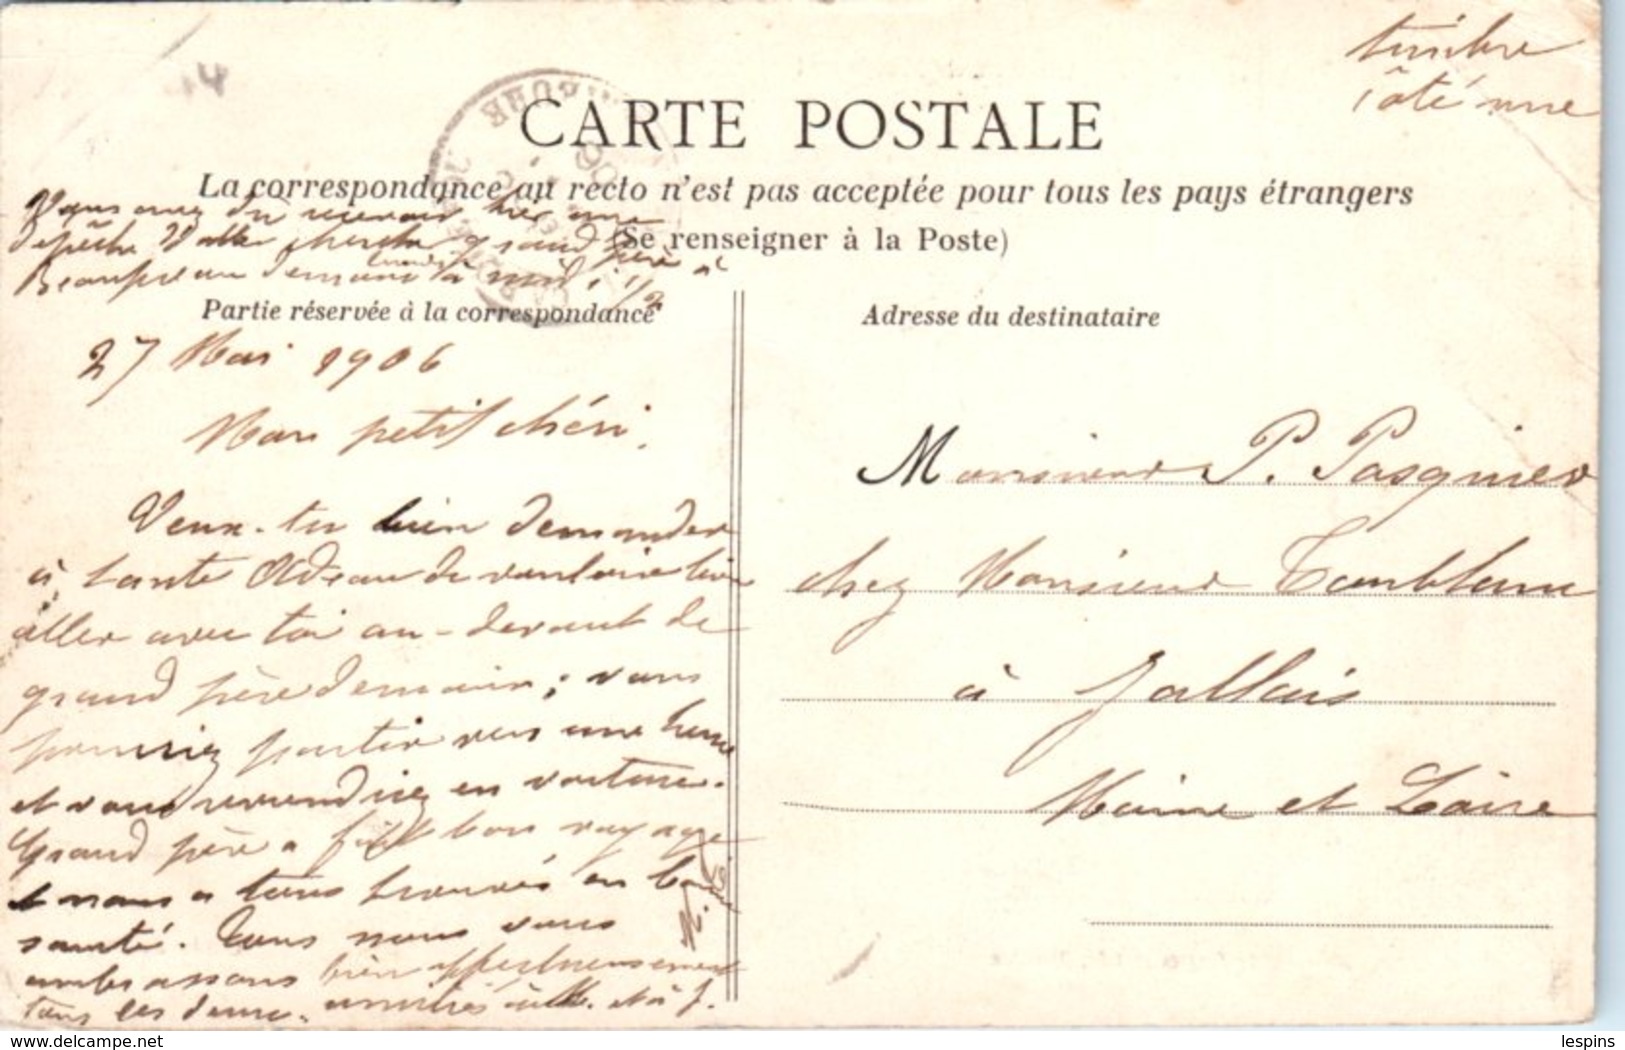 timbre
côté vue
14
CARTE POSTALE
La correspondance au recto n'est pas acceptée pour tous les pays étrangers
(Se renseigner à la Poste)
Vous avez dû recevoir hier une
dépêche d'aller chercher grand père à
Beaupreau demain à midi 1/2
Partie réservée à la correspondance
Adresse du destinataire
27 Mai 1906
Mon petit chéri,
Veux-tu bien demander
à tante de vouloir bien
aller avec toi au-devant de
grand père demain; vous
pourriez partir vers une heure
et vous reviendriez en voiture.
Grand père a fait bon voyage
et nous a tous trouvés en bonne
santé. Tous nous vous
embrassons bien affectueusement
tous les deux. amitiés à M. et à J.
Monsieur P. Pasquier
chez Monsieur Tomblaine
à Jallais
Maine et Loire
delcampe.net
lespins